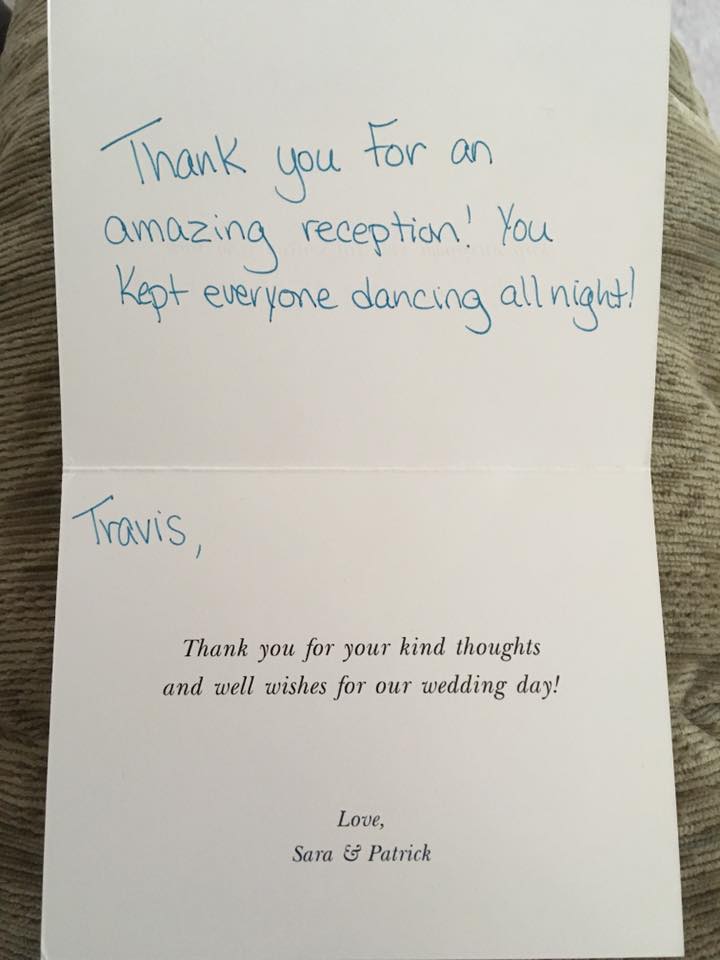 Thank you For an
amazing reception! You
Kept everyone dancing all night!
Travis,
Thank you for your kind thoughts
and well wishes for our wedding day!
Love,
Sara & Patrick